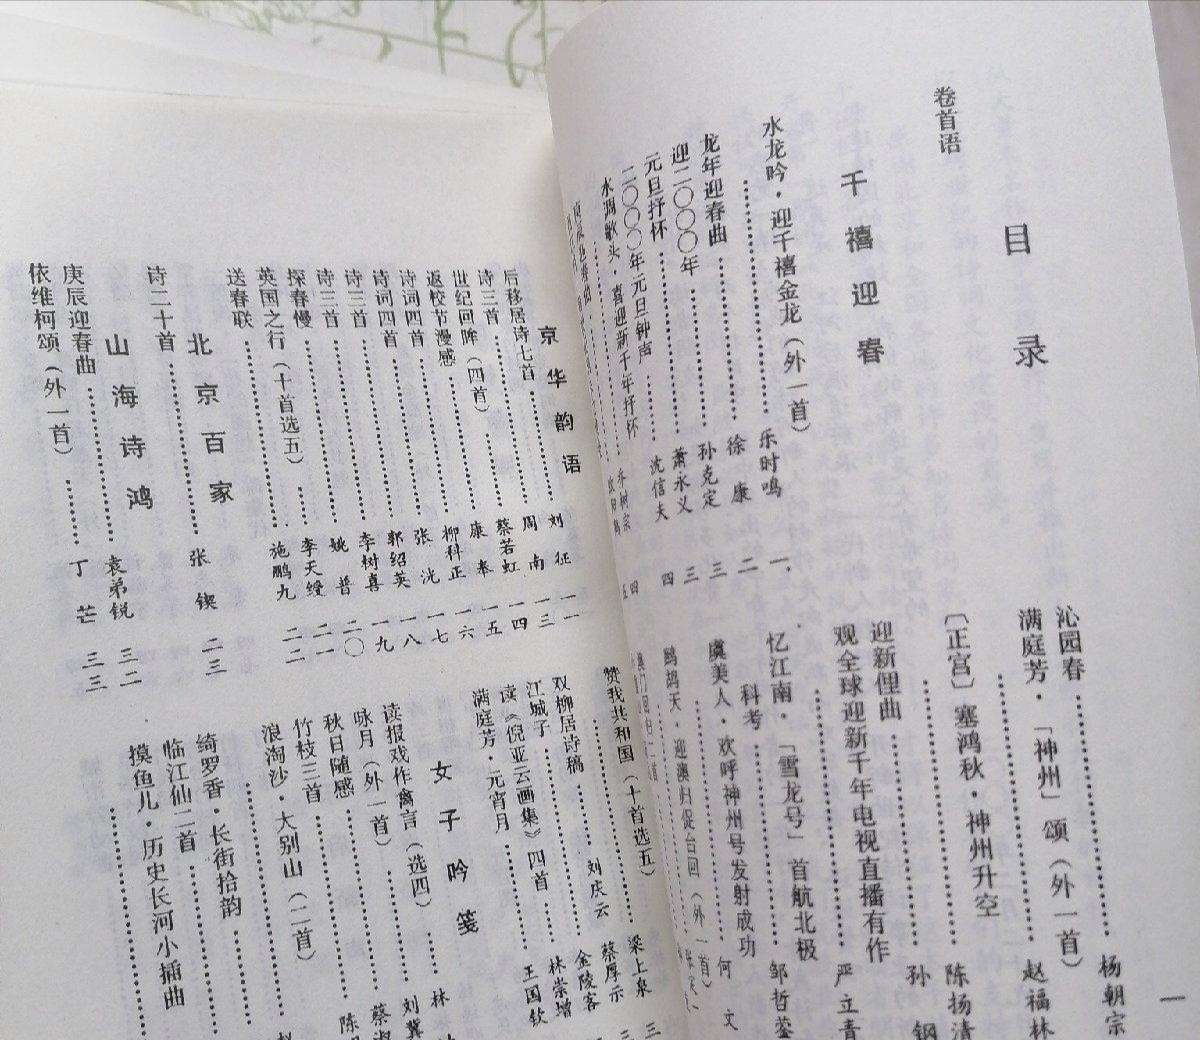 目录
卷首语
千禧迎春
水龙吟·迎千禧金龙(外一首)
乐时鸣 一
龙年迎春曲 徐康 二
迎二〇〇〇年 孙克定 三
元旦抒怀 萧永义 三
二〇〇〇年元旦钟声 沈信夫 四
水调歌头·喜迎新千年抒怀
四
五
沁园春 杨朝宗
满庭芳·「神州」颂(外一首)
赵福林
〔正宫〕塞鸿秋·神州升空
陈扬清
迎新俚曲 孙钢
观全球迎新千年电视直播有作
严立青
忆江南·「雪龙号」首航北极
科考 邹哲蓥
虞美人·欢呼神州号发射成功
何文
鹧鸪天·迎澳归促台回(外一首)
一
京华韵语
刘征 一一
后移居诗七首 周南 一三
诗三首 蔡若虹 一四
世纪回眸(四首) 康奉 一五
返校节漫感 柳科正 一六
诗词四首 张沈 一七
诗词四首 郭绍英 一八
诗三首 李树喜 一九
诗三首 姚普 二〇
探春慢 李天绶 二一
英国之行(十首选五) 施鹏九 二二
送春联
北京百家
诗二十首 张锲 二三
山海诗鸿
庚辰迎春曲 袁弟锐 三二
依维柯颂(外一首) 丁芒 三三
赞我共和国(十首选五) 梁上泉
蔡厚示
双柳居诗稿 刘庆云
江城子 金陵客
读《倪亚云画集》四首 林崇增
满庭芳·元宵月 王国钦
女子吟笺
林
读报戏作禽言(选四) 刘
咏月(外一首) 蔡
秋日随感 陈
竹枝三首
浪淘沙·大别山(二首)
绮罗香·长街拾韵
临江仙二首
摸鱼儿·历史长河小插曲